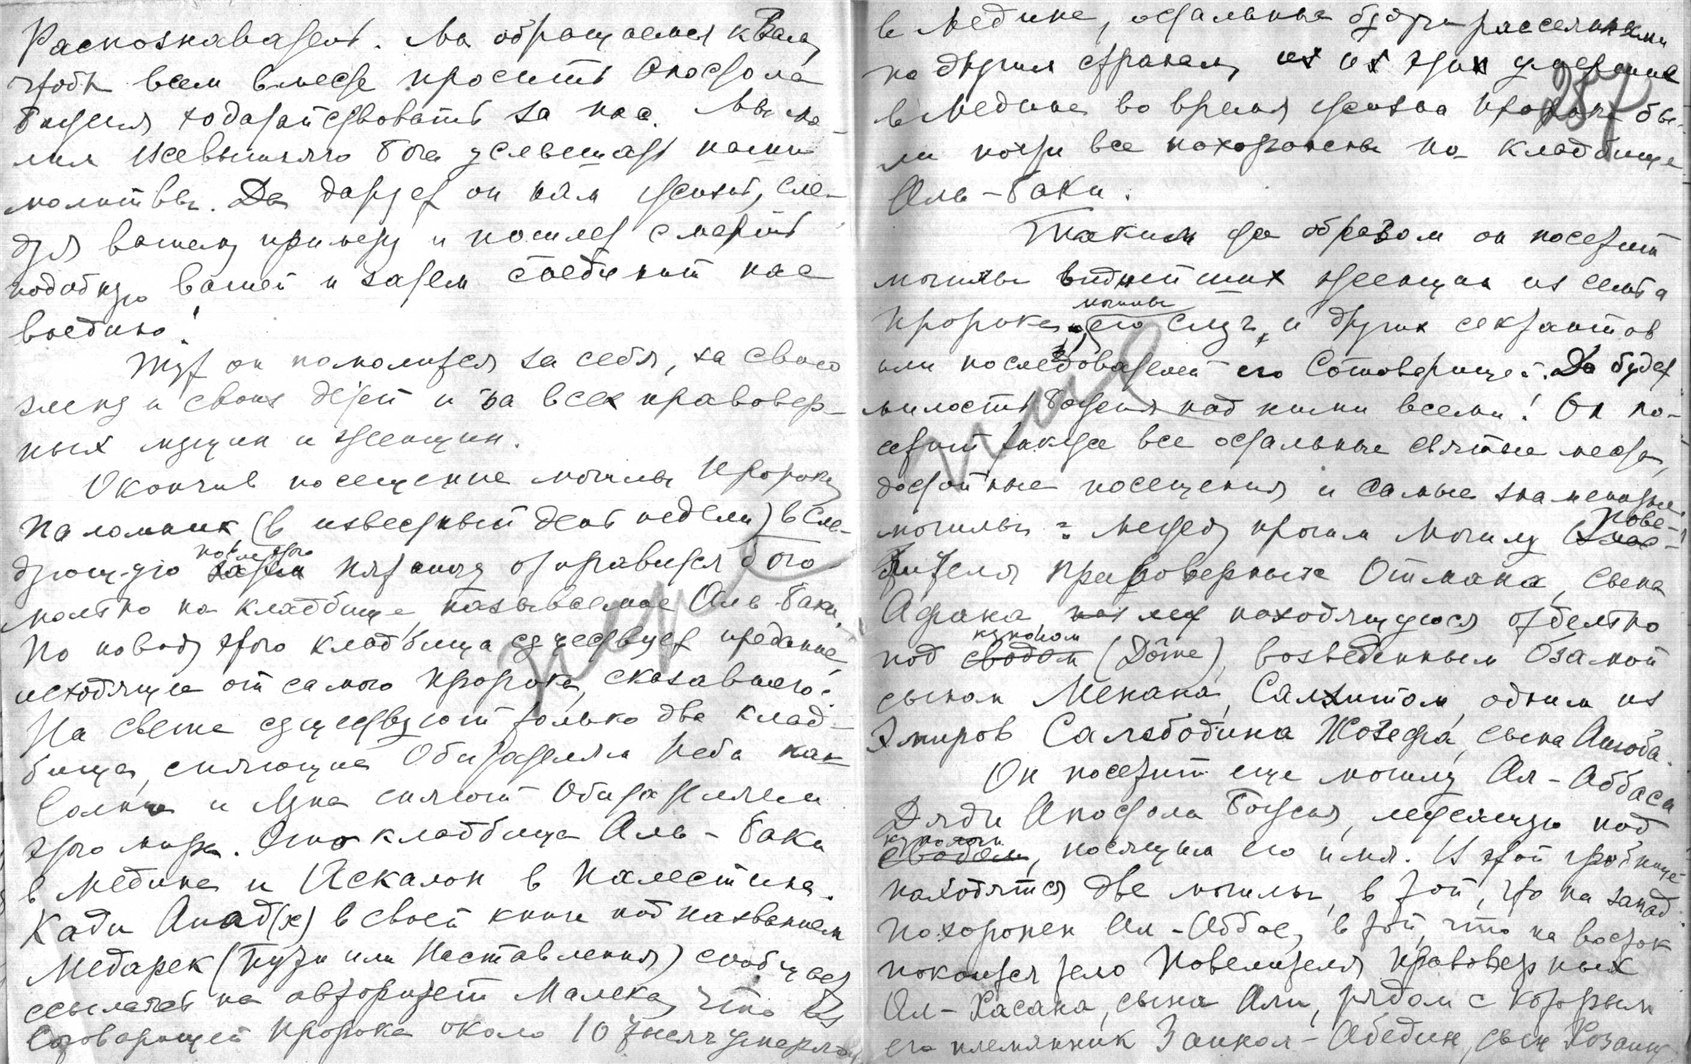 Распознавателя. Мы обращаемся к Вам,
чтобы всем вместе просить Апостола
Божия ходатайствовать за нас. Мы мо-
лим Всевышняго бога услышать наши
молитвы. Да дарует он нам жизнь, сле-
дуя вашему примеру и пошлет смерть
подобную вашей и затем соединит нас
воедино!
Тут он помолится за себя, за свою
жену и своих детей и за всех правовер-
ных мущин и женщин.
Окончив посещение могилы Пророка,
паломник, (в известный день недели) в сле-
дующую после этого затем пятницу отправится бого-
мольно на кладбище, называемое Аль-баки.
По поводу этого кладбища существует предание,
исходящее от самого пророка, сказавшего:
На свете существуют только два клад-
бища, сияющие Обитателям Неба как
Солнце и Луна сияют Обитателям
этого мира. Это кладбища Аль-баки
в Медине и Аскалон в Палестине.
Кади Аиад(х) в своей книге под названием
Медарек (Пути или Наставления) сообщает
ссылаясь на авторитет Малека, что из
Сотоварищей Пророка около 10 тысяч умерло
в Медине, остальные будучи расселенными
по другим странам, из этих умершие
в Медине во время жизни пророка бы-
ли почти все похоронены на кладбище
Аль-баки.
257
Таким же образом он посетит
могилы виднейших женщин из семьи
Пророка, могилы его слуг, и других сектантов
или последователей его Сотоварищей. Да будет
милость божия над ними всеми! Он по-
сетит также все остальные святые места,
достойные посещения и самые знаменитые
могилы: между прочим могилу Пове-
лителя правоверных Отмана, сына
Афана находящуюся отдельно
под куполом сводом (Dôme), возведенным Озамой
сыном Менана, Салхитом, одним из
Эмиров Саладдина Жозефа, сына Аюба.
Он посетит еще могилу Ал-Аббаса
Дяди Апостола Божья, лежащую под
куполом сводом, носящим его имя. В этой гробнице
находятся две могилы, в той, что на запад
похоронен Ал-Аббас, в той, что на восток
покоится тело Повелителя правоверных
Ал-Хасана, сына Али, рядом с которым
его племянник Заинол-Абедин, сын Хозаин